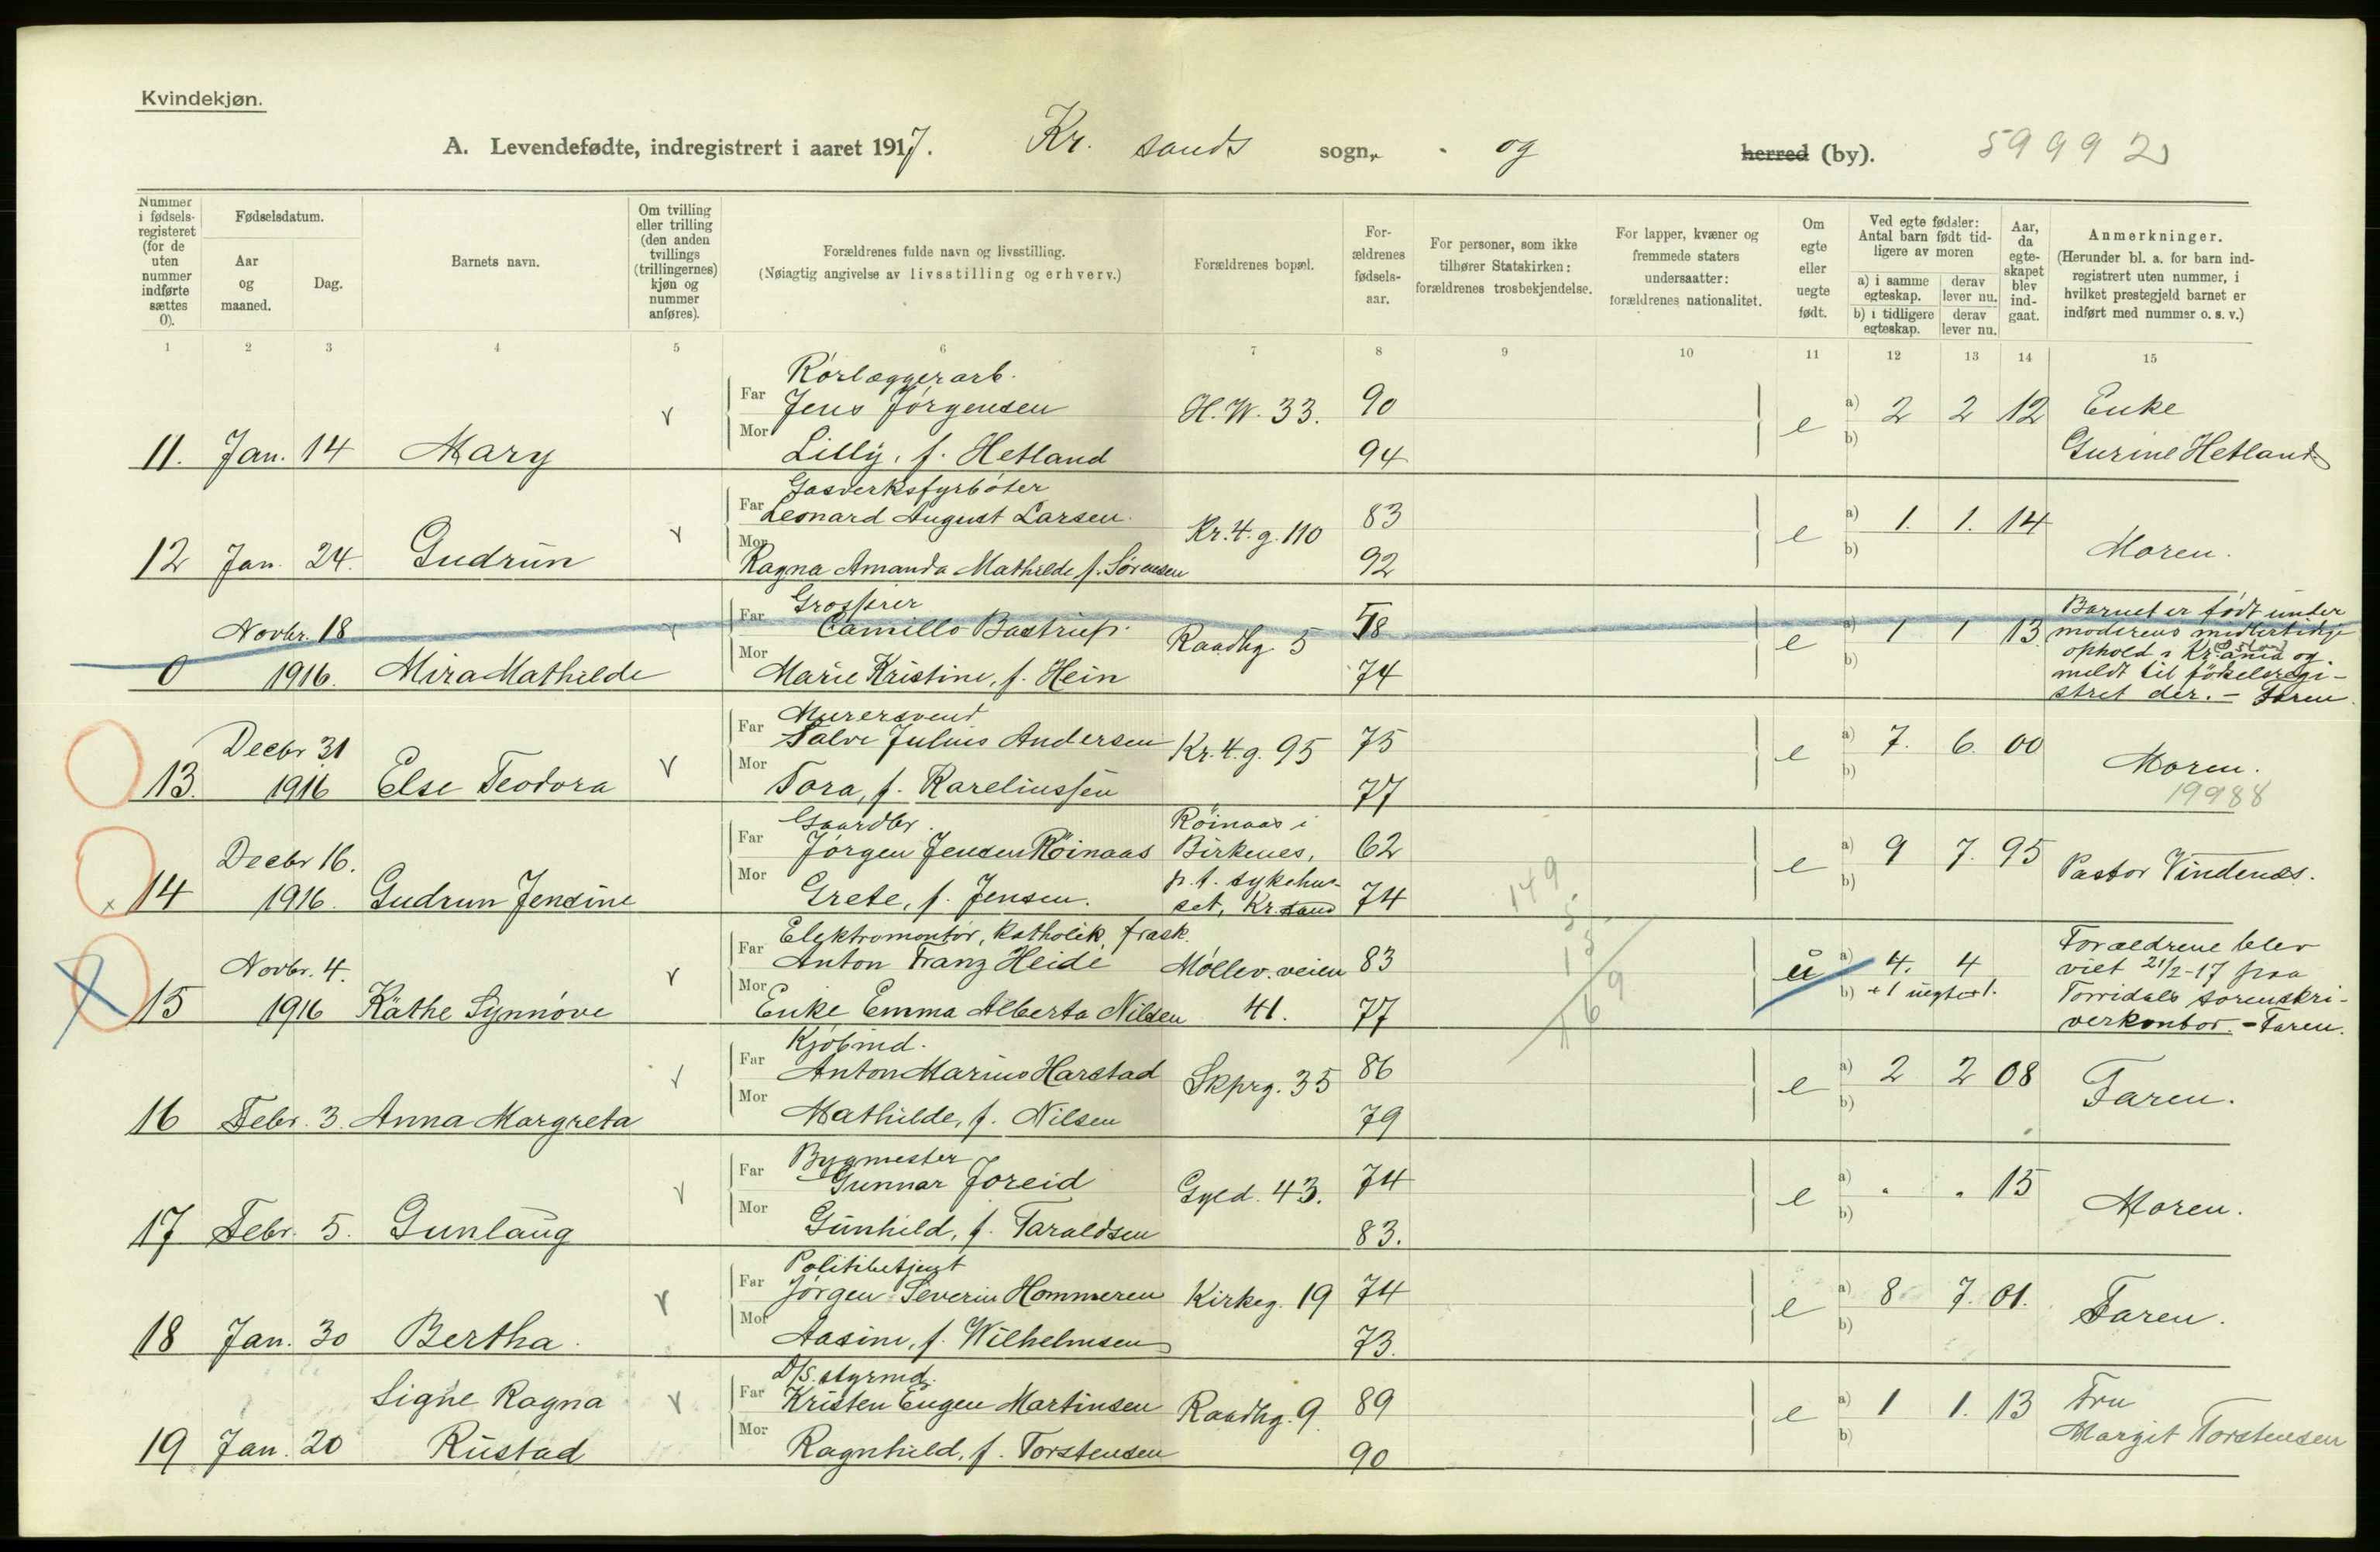 Kvindekjøn.
A. Levendefødte, indregistrert i aaret 1917. Kr. sands sogn, og herred (by). 59992
Nummer i fødsels-registeret (for de uten nummer indførte sættes 0).
Fødselsdatum.
Aar og maaned.
Dag.
Barnets navn.
Om tvilling eller trilling (den anden tvillings (trillingernes) kjøn og nummer anføres).
Forældrenes fulde navn og livsstilling.
(Nøiagtig angivelse av livsstilling og erhverv.)
Forældrenes bopæl.
For-ældrenes fødsels-aar.
For personer, som ikke tilhører Statskirken: forældrenes trosbekjendelse.
For lapper, kvæner og fremmede staters undersaatter: forældrenes nationalitet.
Om egte eller uegte født.
Ved egte fødsler: Antal barn født tid-ligere av moren
a) i samme egteskap. derav lever nu.
b) i tidligere egteskap. derav lever nu.
Aar, da egte-skapet blev ind-gaat.
Anmerkninger.
(Herunder bl. a. for barn ind-registrert uten nummer, i hvilket prestegjeld barnet er indført med nummer o. s. v.)
1 2 3 4 5 6 7 8 9 10 11 12 13 14 15
Rørlæggerarb.
Far Jens Jørgensen H. W. 33. 90 e a) 2 2 12 Enke
Mor b)
11. Jan. 14 Mary v Lilly, f. Hetland 94 Gurine Hetland
Gasverksfyrbøter
Far Leonard August Larsen. Kr. 4. g. 110 83 e a) 1. 1. 14
Mor b)
12 Jan. 24. Gudrun v Ragna Amanda Mathilde f. Sørensen 92 Moren.
Grosserer
Novbr. 18 v Far Camillo Bastrup. Raadhg. 5 58 e a) 1 1 13. Barnet er født under
moderens midlertidige
ophold i Kr.ania og
Oslo
0 1916. Mira Mathilde Mor Marie Kristine, f. Hein 74 b) meldt til fødselsregi-
stret der. - Faren.
Murersvend
Decbr 31 Far Salve Julius Andersen Kr. 4. g. 95 75 e a) 7. 6. 00
13. 1916 Else Teodora v Mor Tora, f. Kareliussen 77 b) Moren.
19988
Gaardbr. Röinaas i
Decbr 16. Far Jørgen Jensen Röinaas Birkenes, 62 e a) 9 7. 95 Pastor Vindenes.
p. t. sykehus-
x 14 1916. Gudrun Jensine Mor Grete, f. Jensen. set, Kr.sand 74 b)
149
5
15
169
Elektromontør, katholik, frask.
Novbr. 4. v Far Anton Franz Heide Møllev. veien 83 u a) 4. 4 Forældrene blev
viet 21/2-17 paa
b) + 1 uegte + 1. Torridals sorenskri-
15 1916 Käthe Synnøve Mor Enke Emma Alberta Nilsen 41. 77 verkontor. - Faren.
Kjøbmd.
Far Anton Marius Harstad Skprg. 35 86 e a) 2 2 08
16 Febr. 3. Anna Margreta v Mor Mathilde, f. Nilsen 79 b) Faren.
Bygmester
Far Gunnar Joreid Gyld. 43. 74 e a) " " 15
17 Febr. 5. Gunlaug v Mor Gunhild, f. Taraldsen 83. b) Moren.
Politibetjent
Far Jørgen Severin Hommeren Kirkeg. 19 74 e a) 8 7. 01.
18 Jan. 30 Bertha. v Mor Aasine, f. Wilhelmsen 73. b) Faren.
D/S. styrmd.
Signe Ragna v Far Kristen Eugen Martinsen Raadhg. 9. 89 e a) 1 1. 13 Fru
19 Jan. 20 Rustad Mor Ragnhild, f. Torstensen 90 b) Margit Torstensen